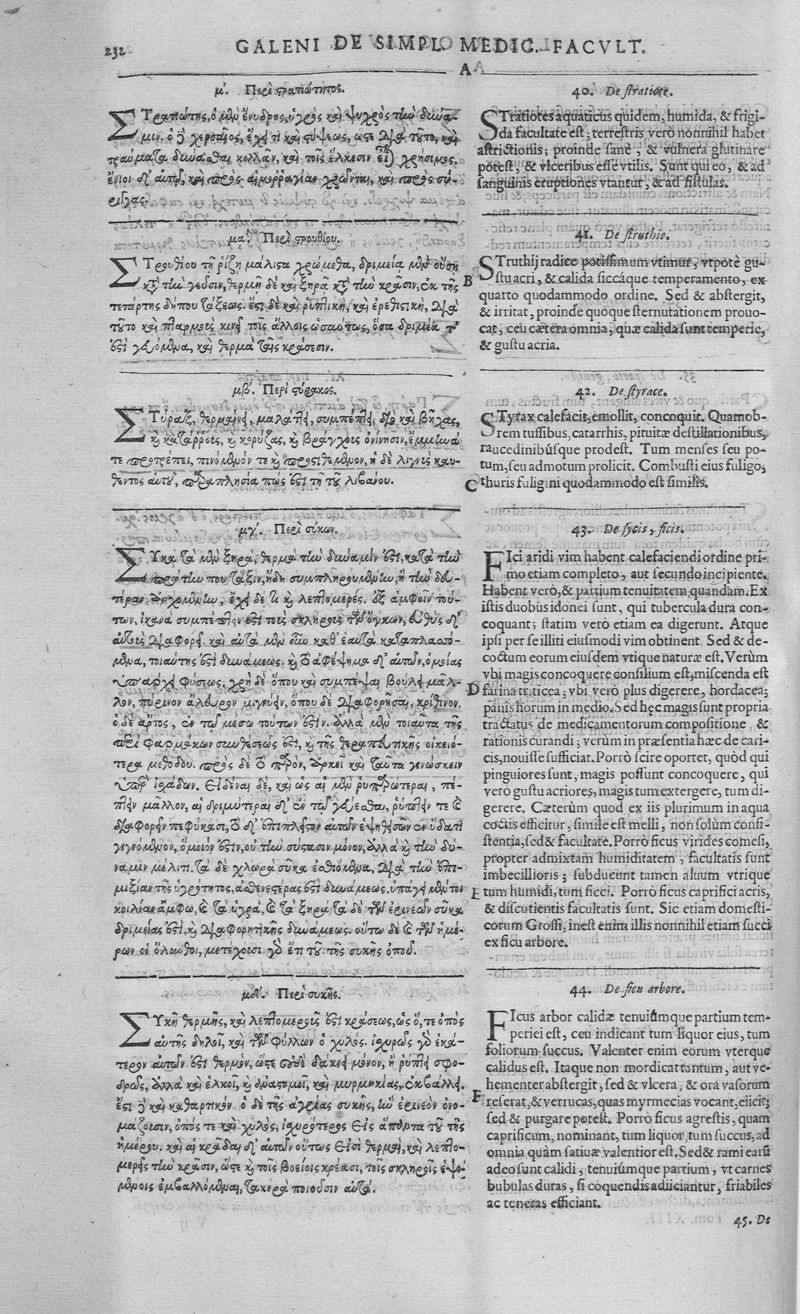 232
GALENI DE SIMPL. MEDIC. FACVLT.
A
μ΄. Περὶ στρατιώτητος.
ΣΤρατιώτης, ὁ μὲν ἔνυδρος, ὑγρὸς καὶ ψυχρὸς τὴν δύνα-
μιν. ὁ δὲ χερσαῖος, ἔχει τι καὶ στύψεως, ὥστε διὰ τοῦτο, καὶ
τραύματα δύναται κολλᾶν, καὶ τοῖς ἕλκεσιν εἶναι χρήσιμος.
ἔνιοι δ' αὐτῷ, καὶ πρὸς αἱμορραγίαν χρῶνται, καὶ πρὸς σύ-
ριγγας.
μα΄. Περὶ στρουθίου.
ΣΤρουθίου τῇ ῥίζῃ μάλιστα χρώμεθα, δριμείᾳ μὲν οὔσῃ
κατὰ τὴν γεῦσιν, θερμῇ δὲ καὶ ξηρᾷ κατὰ τὴν κρᾶσιν, ἐκ τῆς
τετάρτης δήπου τάξεως. ἔστι δὲ καὶ ῥυπτικὴ, καὶ ἐρεθιστικὴ, διὰ
τοῦτο καὶ πταρμοὺς κινεῖ τοῖς ἄλλοις ὡσαύτως, ὅσα δριμέα τε
ἐστὶ γευόμενα, καὶ θερμὰ ταῖς κράσεσιν.
μβ΄. Περὶ στύρακος.
ΣΤύραξ, θερμαίνει, μαλάττει, συμπέττει, διὸ καὶ βῆχας,
καὶ κατάρρους, καὶ κορύζας, καὶ βράγχους ὀνίνησιν, ἔμμηνά
τε προτρέπει, πινόμενόν τε καὶ προστιθέμενον, ἡ δὲ λιγνὺς καυ-
θέντος αὐτοῦ, παραπλησία πώς ἐστι τῇ τοῦ λιβάνου.
μγ΄. Περὶ σύκων.
ΣΥκα τὰ μὲν ξηρὰ, θερμὰ τὴν δύναμίν ἐστι, κατὰ τὴν
πρώτην που τάξιν, ἤδη συμπληρουμένην, ἢ τὴν δευ-
τέραν ἀρχομένην, ἔχει δέ τι καὶ λεπτομερές. ἐξ ἀμφοῖν τού-
των, ἱκανὰ συμπέττειν ἐστὶ τοὺς σκληροὺς τῶν ὄγκων, εὐθὺς δ'
αὐτοὺς διαφορεῖ. καὶ αὐτὰ μὲν οὖν καθ' ἑαυτὰ καταπλασσό-
μενα, τοιαύτης ἐστὶ δυνάμεως. καὶ τὸ ἀφέψημα δ' αὐτῶν, ὁμοίας
ὑπάρχει φύσεως, χρὴ δὲ ὅπου καὶ συμπέψαι βουλῇ μᾶλ-
λον, πύρινον ἄλευρον μιγνύειν, ὅπου δὲ διαφορῆσαι, κρίθινον.
ὁ δὲ ἄρτος, ἐν τῷ μέσῳ τούτων ἐστίν. ἀλλὰ μὲν τοιαῦτα τῆς
περὶ φαρμάκων συνθέσεώς ἐστι, καὶ τῆς θεραπευτικῆς οἰκειό-
τερα μεθόδου. πρὸς δὲ τὸ παρὸν, ἀρκεῖ καὶ ταῦτα γινώσκειν
ὑπὲρ ἰσχάδων. εἰδέναι δὲ, καὶ ὡς αἱ μὲν λιπαρώτεραι, πέτ-
τειν μᾶλλον, αἱ δριμύτεραι δ' ἐν τῷ γεύεσθαι, ῥύπτειν τε καὶ
διαφορεῖν πεφύκασι, τὸ δ' ἐπιπλεῖστον αὐτῶν ἑψηθεισῶν ἐν ὕδατι
γιγνόμενον, ὅμοιόν ἐστιν, οὐ τὴν σύστασιν μόνον, ἀλλὰ καὶ τὴν δύ-
ναμιν μέλιτι. τὰ δὲ χλωρὰ σῦκα ἐσθιόμενα, διὰ τὴν ἐπι-
μιξίαν τῆς ὑγρότητος, ἀσθενεστέρας ἐστὶ δυνάμεως. ὑπάγει μέντοι
κοιλίαν ἄμφω, καὶ τὰ ὑγρὰ, καὶ τὰ ξηρὰ. τὰ δὲ τῶν ἐρινεῶν σῦκα
δριμείας ἐστὶ καὶ διαφορητικῆς δυνάμεως. οὕτω δὲ καὶ τῶν ἡμέ-
ρων οἱ ὄλυνθοι, μετέχουσι γὰρ ἔτι τοῦ τῆς συκῆς ὀποῦ.
μδ΄. Περὶ συκῆς.
ΣΥκῆ θερμῆς, καὶ λεπτομεροῦς ἐστὶ κράσεως, ὡς ὅ,τε ὀπὸς
αὐτῆς δηλοῖ, καὶ τῶν φύλλων ὁ χυλός. ἰσχυρῶς γὰρ ἑκά-
τερον αὐτῶν ἐστὶ θερμὸν, ὥστε οὐδὲ δάκνει μόνον, ἢ ῥύπτει σφο-
δρῶς, ἀλλὰ καὶ ἑλκοῖ, καὶ ἀναστομοῖ, καὶ μυρμηκίας, ἐκβάλλει.
ἔστι δὲ καὶ καθαρτικόν. ὁ δὲ τῆς ἀγρίας συκῆς, ἣν ἐρινεὸν ὀνο-
μάζουσιν, ὀπός τε καὶ χυλὸς, ἰσχυρότερος εἰς ἅπαντα τοῦ τῆς
ἡμέρου. καὶ αἱ κράδαι δ' αὐτῶν οὕτως εἰσὶ θερμαὶ, καὶ λεπτο-
μερεῖς τὴν κρᾶσιν, ὥστε καὶ τοῖς βοείοις κρέασι, τοῖς σκληροῖς ἑψο-
μένοις ἐμβαλλόμεναι, τακερὰ ποιοῦσιν αὐτά.
40. De stratiote.
STratiotes aquaticus quidem, humida, & frigi-
da facultate est; terrestris verò nonnihil habet
astrictionis; proinde sanè, & vulnera glutinare
potest, & vlceribus esse vtilis. Sunt qui eo, & ad
sanguinis eruptiones vtantur, & ad fistulas.
41. De struthio.
STruthij radice potissimum vtimur, vtpotè gu-
B stu acri, & calida siccáque temperamento, ex
quarto quodammodo ordine. Sed & abstergit,
& irritat, proinde quoque sternutationem prouo-
cat, ceu cætera omnia, quæ calida sunt temperie,
& gustu acria.
42. De styrace.
STyrax calefacit, emollit, concoquit. Quamob-
rem tussibus, catarrhis, pituitæ destillationibus,
raucedinibúsque prodest. Tum menses seu po-
tum, seu admotum prolicit. Combusti eius fuligo,
C thuris fuligini quodammodo est similis.
43. De sycis, ficis.
FIci aridi vim habent calefaciendi ordine pri-
mo etiam completo, aut secundo incipiente.
Habent verò, & partium tenuitatem quandam. Ex
istis duobus idonei sunt, qui tubercula dura con-
coquant; statim verò etiam ea digerunt. Atque
ipsi per se illiti eiusmodi vim obtinent. Sed & de-
coctum eorum eiusdem vtique naturæ est. Verùm
vbi magis concoquere consilium est, miscenda est
D farina triticea; vbi verò plus digerere, hordacea;
panis horum in medio. Sed hęc magis sunt propria
tractatus de medicamentorum compositione, &
rationis curandi; verùm in præsentia hæc de cari-
cis, nouisse sufficiat. Porrò scire oportet, quòd qui
pinguiores sunt, magis possunt concoquere, qui
verò gustu acriores, magis tum extergere, tum di-
gerere. Cæterùm quod ex iis plurimum in aqua
coctis efficitur, simile est melli, non solùm consi-
stentia, sed & facultate. Porrò ficus virides comesi,
propter admixtam humiditatem, facultatis sunt
imbecillioris; subducunt tamen aluum vtrique
E tum humidi, tum sicci. Porrò ficus caprifici acris,
& discutientis facultatis sunt. Sic etiam domesti-
corum Grossi, inest enim illis nonnihil etiam succi
ex ficu arbore.
44. De ficu arbore.
FIcus arbor calidæ tenuiúmque partium tem-
periei est, ceu indicant tum liquor eius, tum
foliorum succus. Valenter enim eorum vterque
calidus est. Itaque non mordicat tantum, aut ve-
hementer abstergit, sed & vlcera, & ora vasorum
F reserat, & verrucas, quas myrmecias vocant, eiicit;
sed & purgare potest. Porrò ficus agrestis, quam
caprificum, nominant, tum liquor, tum succus, ad
omnia quàm satiuæ valentior est. Sed & rami earũ
adeo sunt calidi, tenuiúmque partium, vt carnes
bubulas duras, si coquendis adiiciantur, friabiles
ac teneras efficiant.
45. De